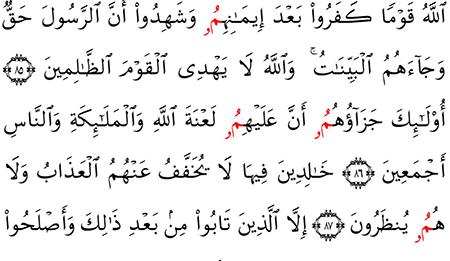 ٱللَّهُ قَوْمٗا كَفَرُواْ بَعْدَ إِيمَٰنِهِمُۥ وَشَهِدُوٓاْ أَنَّ ٱلرَّسُولَ حَقّٞ
وَجَآءَهُمُ ٱلْبَيِّنَٰتُۚ وَٱللَّهُ لَا يَهْدِى ٱلْقَوْمَ ٱلظَّٰلِمِينَ ۝٨٥
أُوْلَٰٓئِكَ جَزَآؤُهُمُۥٓ أَنَّ عَلَيْهِمُۥ لَعْنَةَ ٱللَّهِ وَٱلْمَلَٰٓئِكَةِ وَٱلنَّاسِ
أَجْمَعِينَ ۝٨٦ خَٰلِدِينَ فِيهَا لَا يُخَفَّفُ عَنْهُمُ ٱلْعَذَابُ وَلَا
هُمُۥ يُنظَرُونَ ۝٨٧ إِلَّا ٱلَّذِينَ تَابُواْ مِنۢ بَعْدِ ذَٰلِكَ وَأَصْلَحُواْ